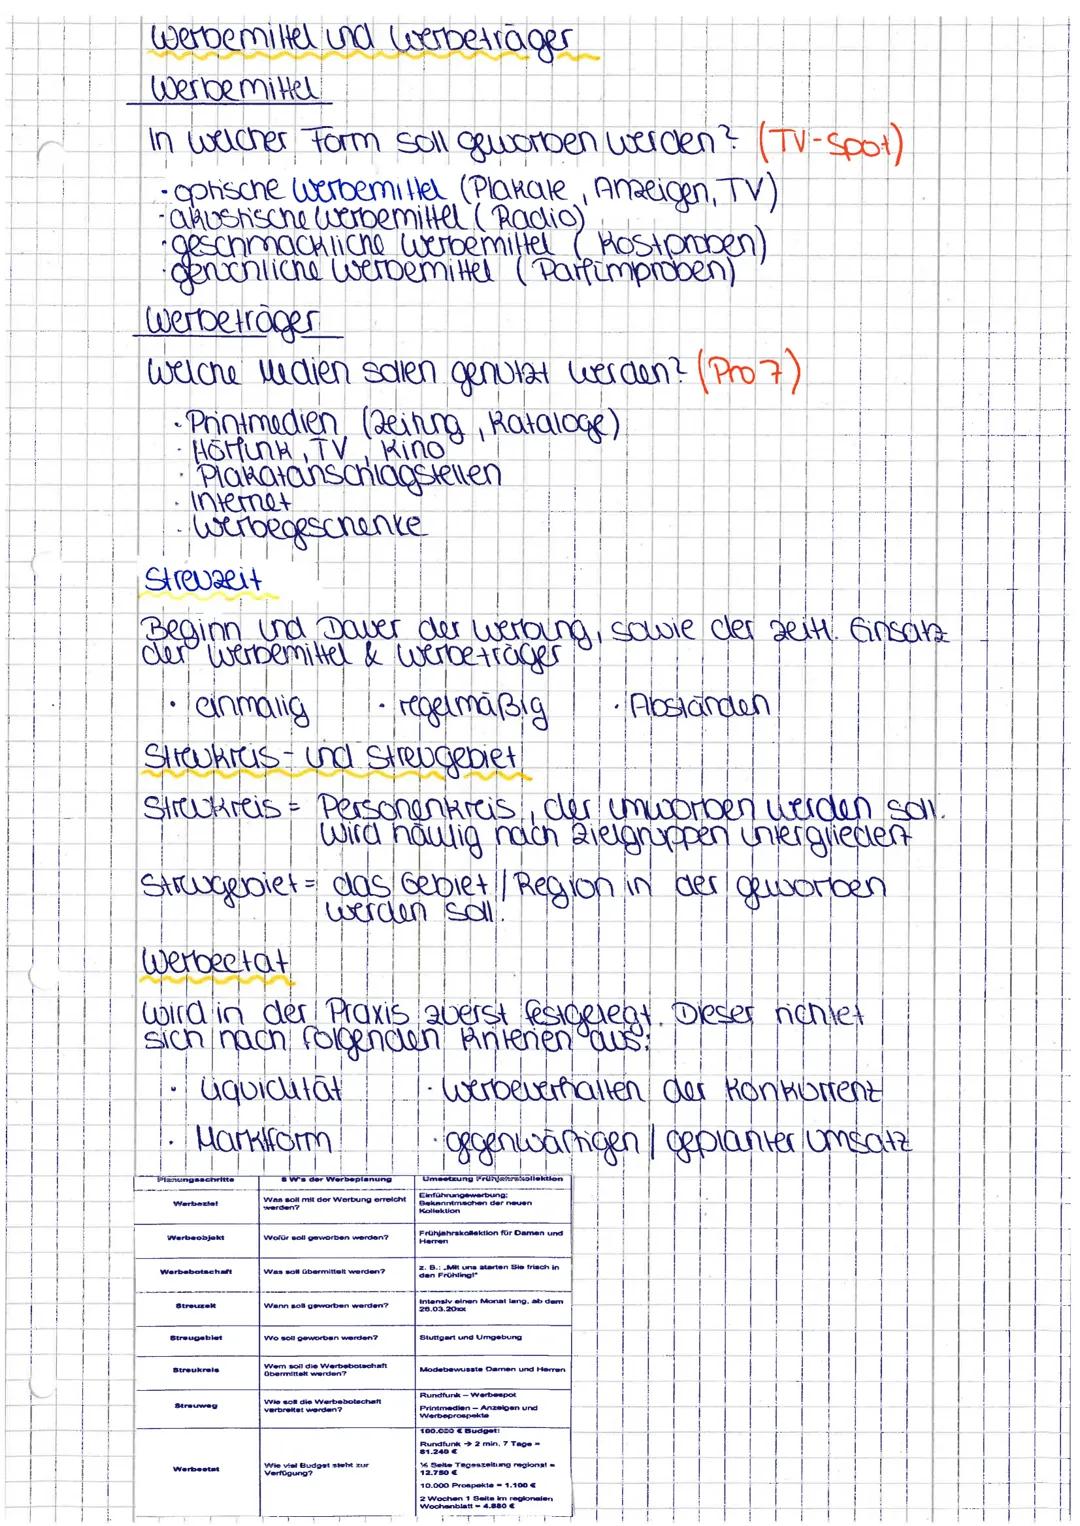 Werbemittel und Werbeträger
Werbemittel
In welcher Form soll geworben werden? (TV-Spot)
· optische Werbemittel (Plakate, Anzeigen, TV)
· akustische Werbemittel (Radio)
· geschmackliche Werbemittel (Kostproben)
· geruchliche Werbemittel (Parfümproben)
Werbeträger
Welche Medien sollen genutzt werden? (Pro 7)
· Printmedien (Zeitung, Kataloge)
· Hörfunk, TV, Kino
· Plakatanschlagstellen
· Internet
· Werbegeschenke
Streuzeit
Beginn und Dauer der Werbung, sowie der zeitl. Einsatz
der Werbemittel & Werbeträger
· einmalig · regelmäßig · Abständen
Streukreis- und Streugebiet
Streukreis = Personenkreis, der umworben werden soll.
Wird häufig nach Zielgruppen untergliedert
Streugebiet = das Gebiet / Region in der geworben
werden soll.
Werbeetat
Wird in der Praxis zuerst festgelegt. Dieser richtet
sich nach folgenden Kriterien aus:
· Liquidität · Werbeverhalten der Konkurrenz
· Marktform · gegenwärtigen / geplanter Umsatz
Planungsschritte 8 W's der Werbeplanung Umsetzung Frühjahrskollektion
Werbeziel Was soll mit der Werbung erreicht werden? Einführungswerbung; Bekanntmachen der neuen Kollektion
Werbeobjekt Wofür soll geworben werden? Frühjahrskollektion für Damen und Herren
Werbebotschaft Was soll übermittelt werden? z. B.: „Mit uns starten Sie frisch in den Frühling!"
Streuzeit Wann soll geworben werden? Intensiv einen Monat lang, ab dem 26.03.20xx
Streugebiet Wo soll geworben werden? Stuttgart und Umgebung
Streukreis Wem soll die Werbebotschaft übermittelt werden? Modebewusste Damen und Herren
Streuweg Wie soll die Werbebotschaft verbreitet werden? Rundfunk – Werbespot
Printmedien – Anzeigen und Werbeprospekte
Werbeetat Wie viel Budget steht zur Verfügung? 100.000 € Budget:
Rundfunk → 2 min, 7 Tage = 81.240 €
Seite Tageszeitung regional = 12.750 €
10.000 Prospekte = 1.100 €
2 Wochen 1 Seite im regionalen Wochenblatt = 4.880 €